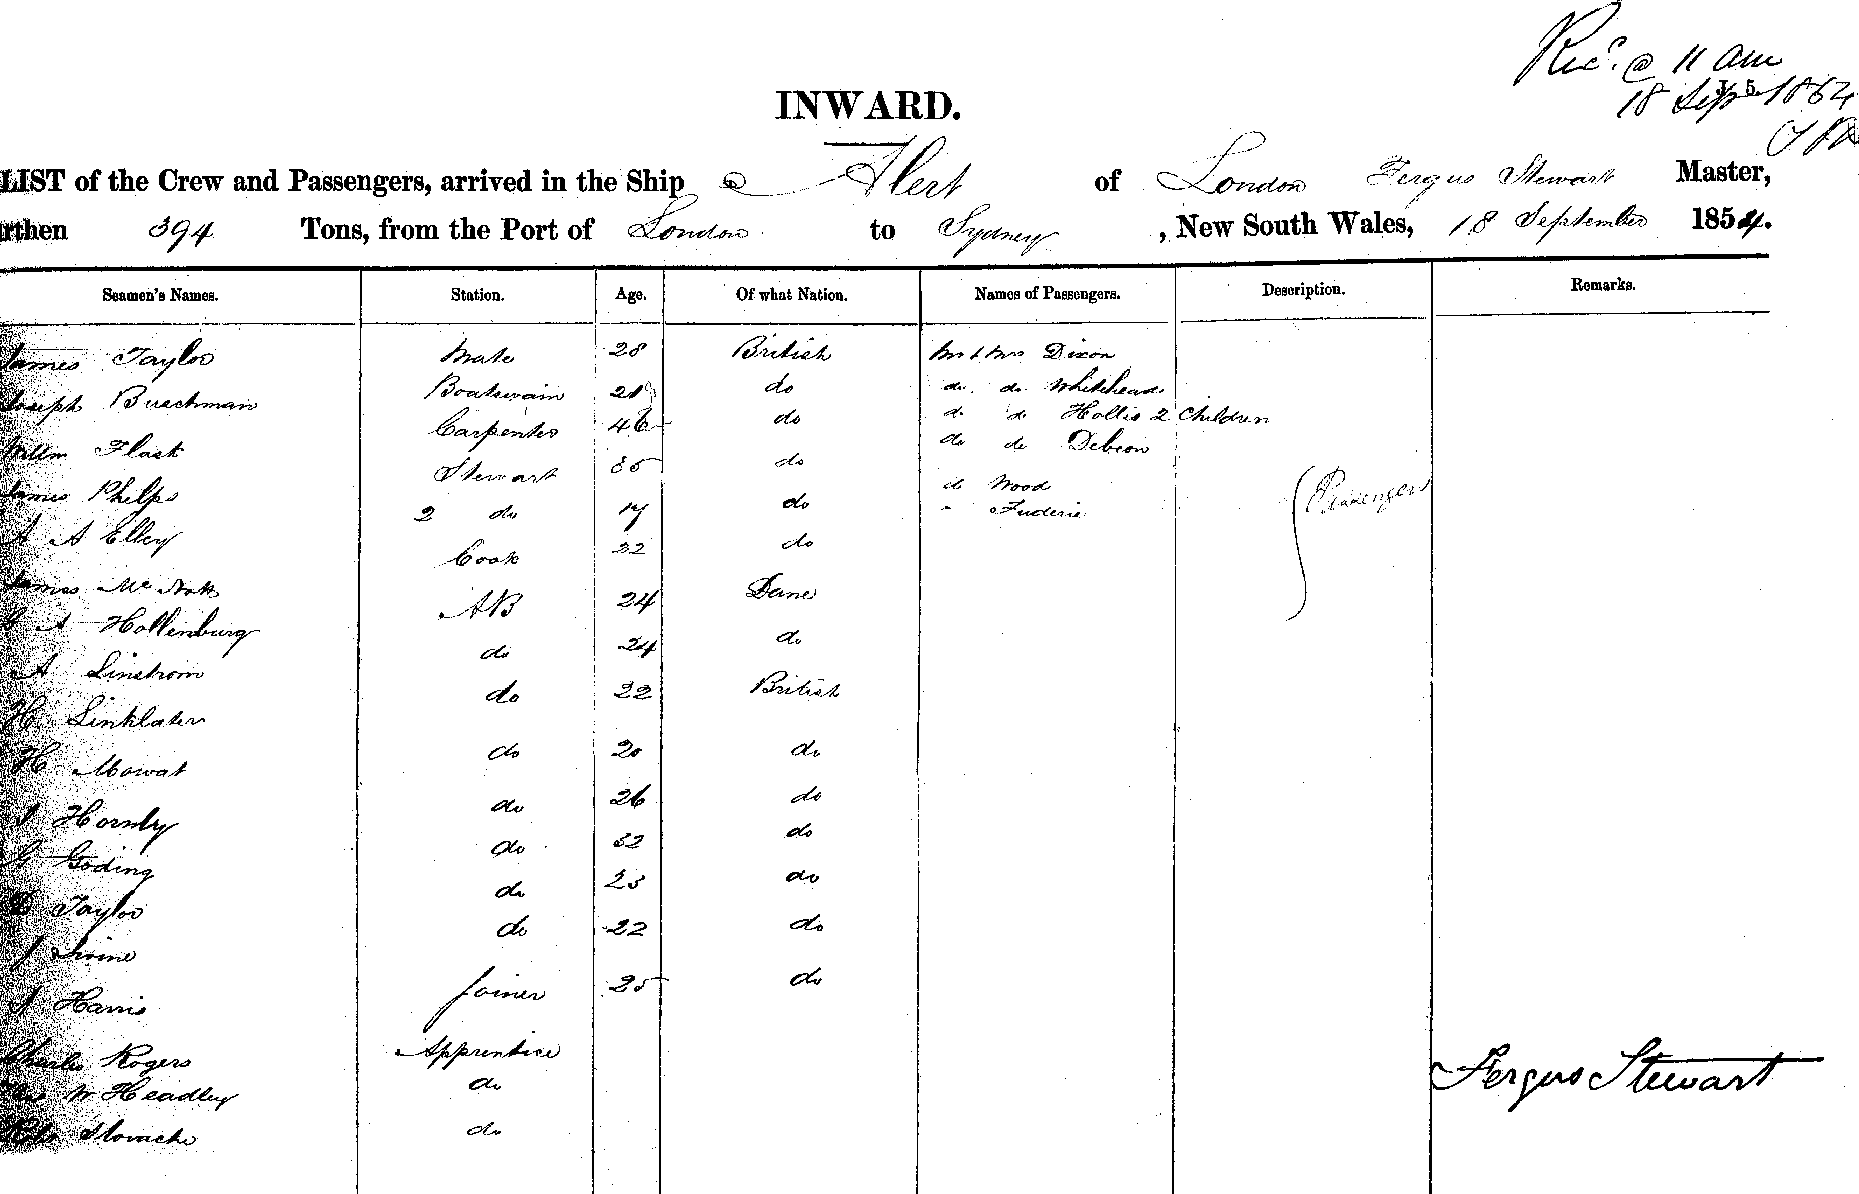 Recd. @ 11 am
18 Sept 1854
INWARD.
LIST of the Crew and Passengers, arrived in the Ship Alert of London Fergus Stewart Master,
rthen 394 Tons, from the Port of London to Sydney, New South Wales, 18 September 1854.
Seamen's Names. Station. Age. Of what Nation. Names of Passengers. Description. Remarks.
James Taylor Mate 28 British Mr & Mrs Dixon
Joseph Buschman Boatswain do do do Whitehead
Willm Flask Carpenter 46 do do do Hollis 2 Children
James Phelps Stewart 35 do do do Debeon
A A Elley 2 do 17 do do Wood
James Mc Cook 22 do " Passengers
A Hollenburg AB 24 Dane
A Linstrom do 24 do
H Linklater do 22 British
H Mowat do 20 do
J Hornby do 26 do
G Goding do 32 do
D Taylor do 23 do
J Irvine do 22 do
J Harris Joiner 25 do
Charles Rogers Apprentice
W Headley do
do
Fergus Stewart